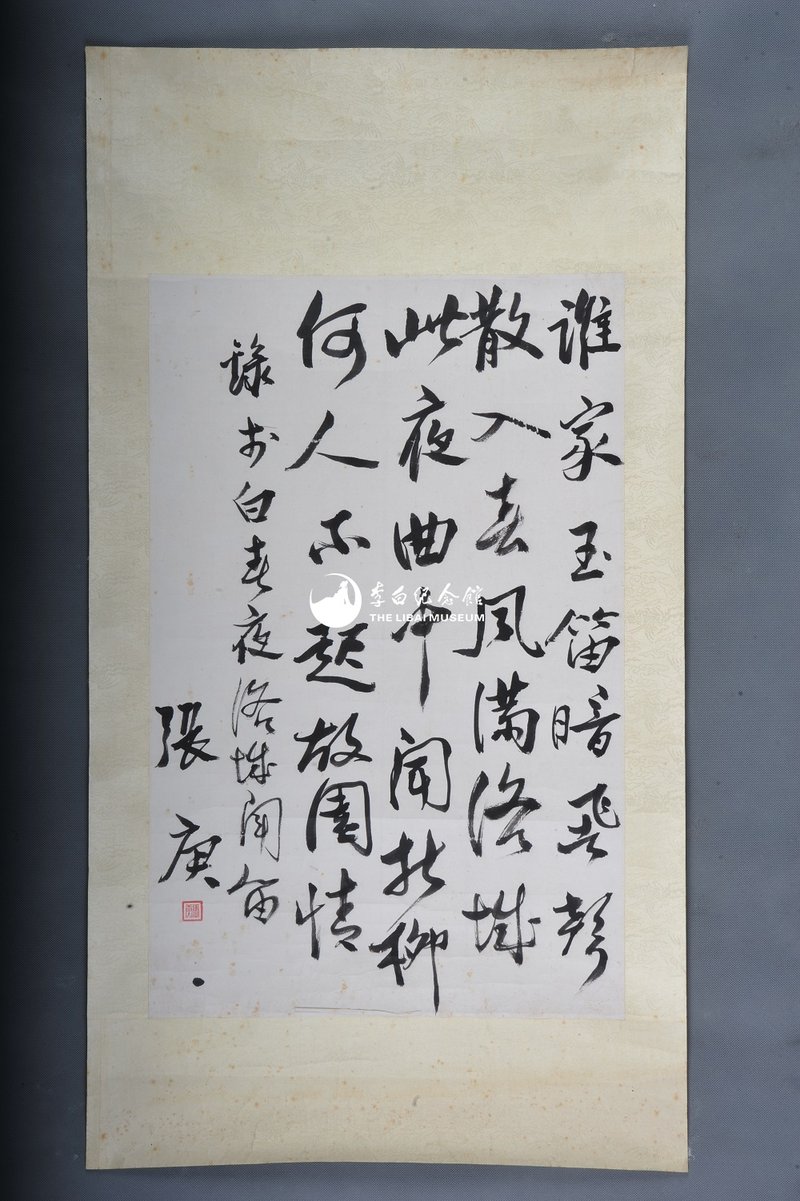 誰家玉笛暗飛聲
散入春風滿洛城
此夜曲中聞折柳
何人不起故園情
錄李白春夜洛城聞笛
張庚
李白纪念館
THE LIBAI MUSEUM